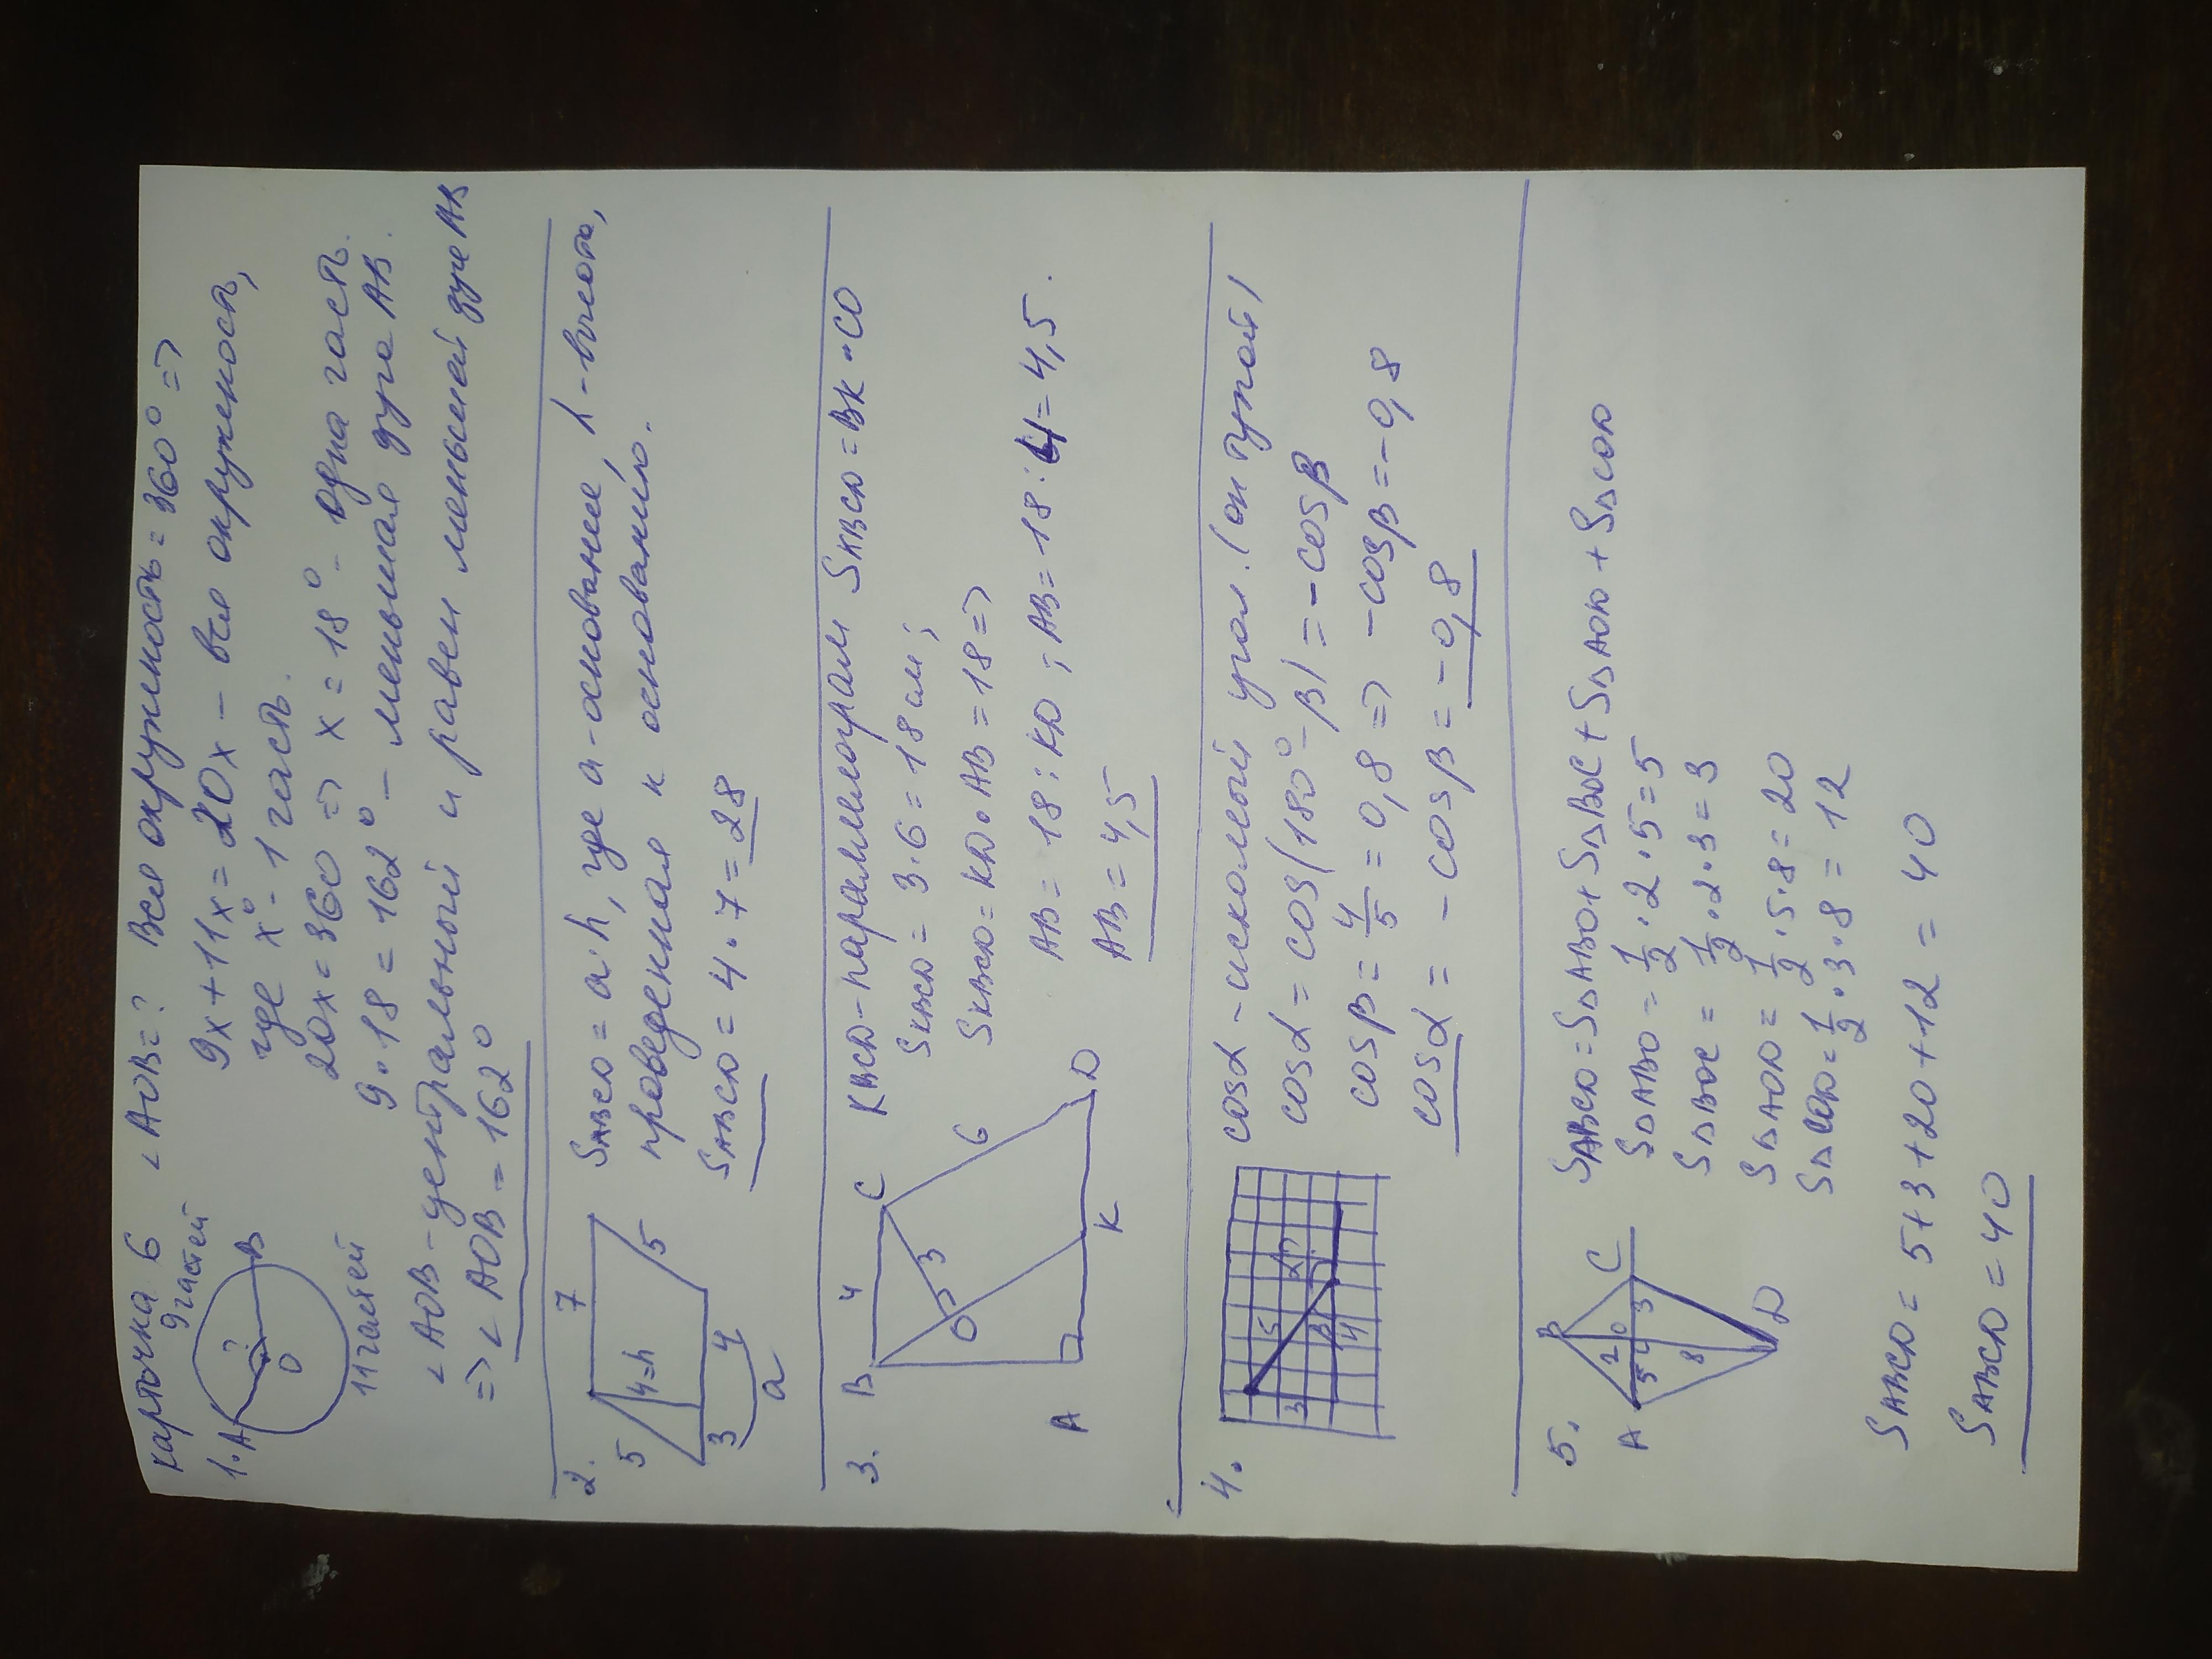 Карточка 6 ∠AOB=? Вся окружность = 360° =>
9 частей
1. A B
?
O
11 частей
9x+11x = 20x – вся окружность,
где x° - 1 часть.
20x = 360 => x = 18° - одна часть.
9·18 = 162° – меньшая дуга AB.
∠AOB - центральный и равен меньшей дуге AB
=> ∠AOB = 162°
2. 7
5 4=h 5
3 4
a
SABCD = a·h, где a - основание, h - высота,
проведенная к основанию.
SABCD = 4·7 = 28
3. B 4 C
O 3 6
A K D
KBCD - параллелограмм SKBCD = BK·CO
SKBCD = 3·6 = 18 см;
SKBCD = KD·AB = 18 =>
AB = 18:KD; AB = 18:4 = 4,5.
AB = 4,5
4.
3 5 β α
4
cosα - искомый угол. (он тупой)
cosα = cos(180° - β) = -cosβ
cosβ = 4/5 = 0,8 => -cosβ = -0,8
cosα = -cosβ = -0,8
5. B
A 2 O C
5 4 3
8
D
SABCD = SΔABO + SΔBOC + SΔAOD + SΔCOD
SΔABO = 1/2·2·5 = 5
SΔBOC = 1/2·2·3 = 3
SΔAOD = 1/2·5·8 = 20
SΔCOD = 1/2·3·8 = 12
SABCD = 5+3+20+12 = 40
SABCD = 40